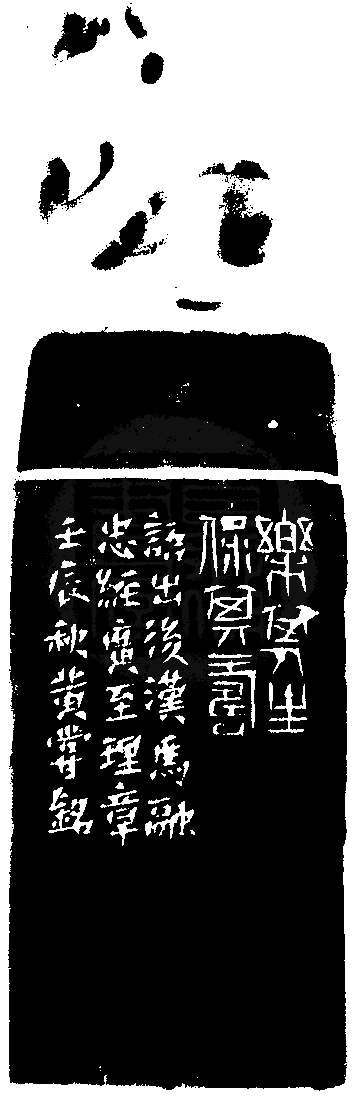 樂其生
保其壽
語出後漢馬融
忠經廣至理章
壬辰秋黃嘗銘